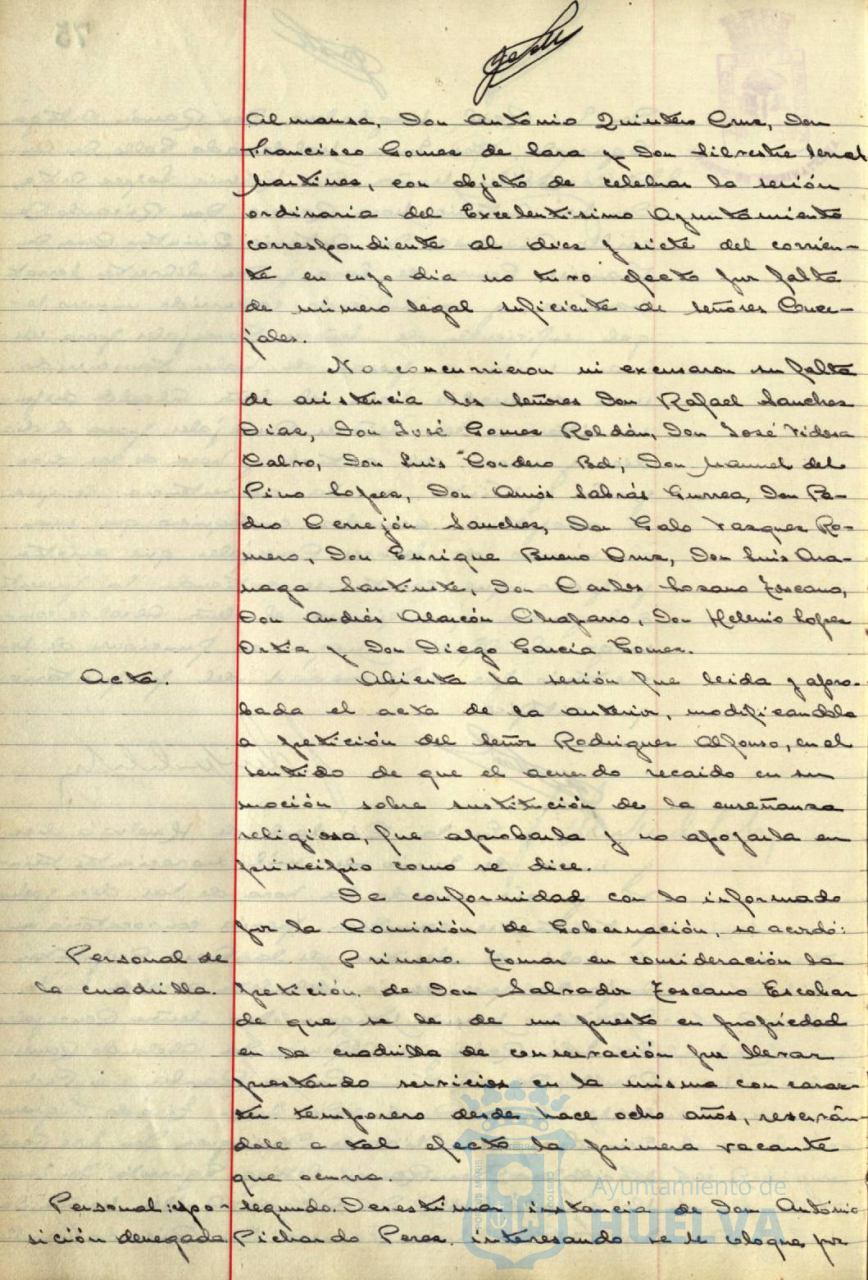 Almansa, Don Antonio Quintero Cruz, Don
Francisco Gomez de Lara y Don Silvestre Senal
Martinez, con objeto de celebrar la sesión
ordinaria del Excelentisimo Ayuntamiento
correspondiente al diez y siete del corrien-
te en cuyo dia no tuvo efecto por falta
de número legal suficiente de señores Conce-
jales.
No concurrieron ni excusaron su falta
de asistencia los señores Don Rafael Sanchez
Diaz, Don José Gomez Roldán, Don José Vidosa
Calvo, Don Luis Cordero Bel, Don Manuel del
Pino Lopez, Don Amós Sabrás Gurrea, Don Pe-
dro Cerrejón Sanchez, Don Galo Vazquez Ro-
mero, Don Enrique Bueno Cruz, Don Luis Ara-
naga Santuste, Don Carlos Lozano Toscano,
Don Andrés Alarcón Chaparro, Don Helenio Lopez
Ortiz y Don Diego Garcia Gomez.
Acta. Abierta la sesión fue leida y apro-
bada el acta de la anterior, modificandola
a petición del Señor Rodriguez Alfonso, en el
sentido de que el acuerdo recaido en su
moción sobre sustitución de la enseñanza
religiosa, fue aprobarla y no apoyarla en
principio como se dice.
De conformidad con lo informado
por la Comisión de Gobernación, se acordó:
Personal de Primero. Tomar en consideración la
la cuadrilla. petición de Don Salvador Toscano Escobar
de que se le de un puesto en propiedad
en la cuadrilla de conservación por llevar
prestando servicios en la misma con carac-
ter temporero desde hace ocho años, reserván-
dole a tal efecto la primera vacante
que ocurra.
Personal: opo- Segundo. Desestimar instancia de Don Antonio
sición denegada Pichardo Perez, interesando se le coloque por
Ayuntamiento de
HUELVA